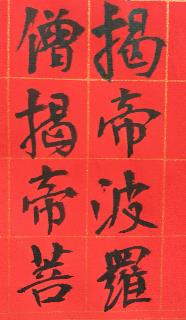 揭帝波羅
僧揭帝菩